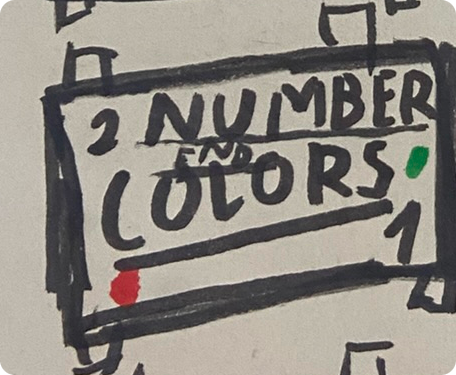 2 NUMBER
END
COLORS
1